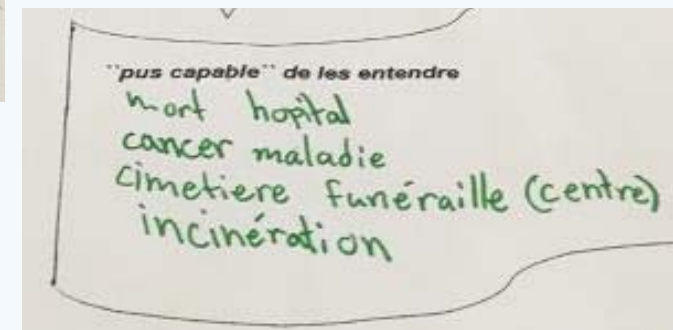 "pus capable" de les entendre
mort hopital
cancer maladie
cimetiere funéraille (centre)
incinération